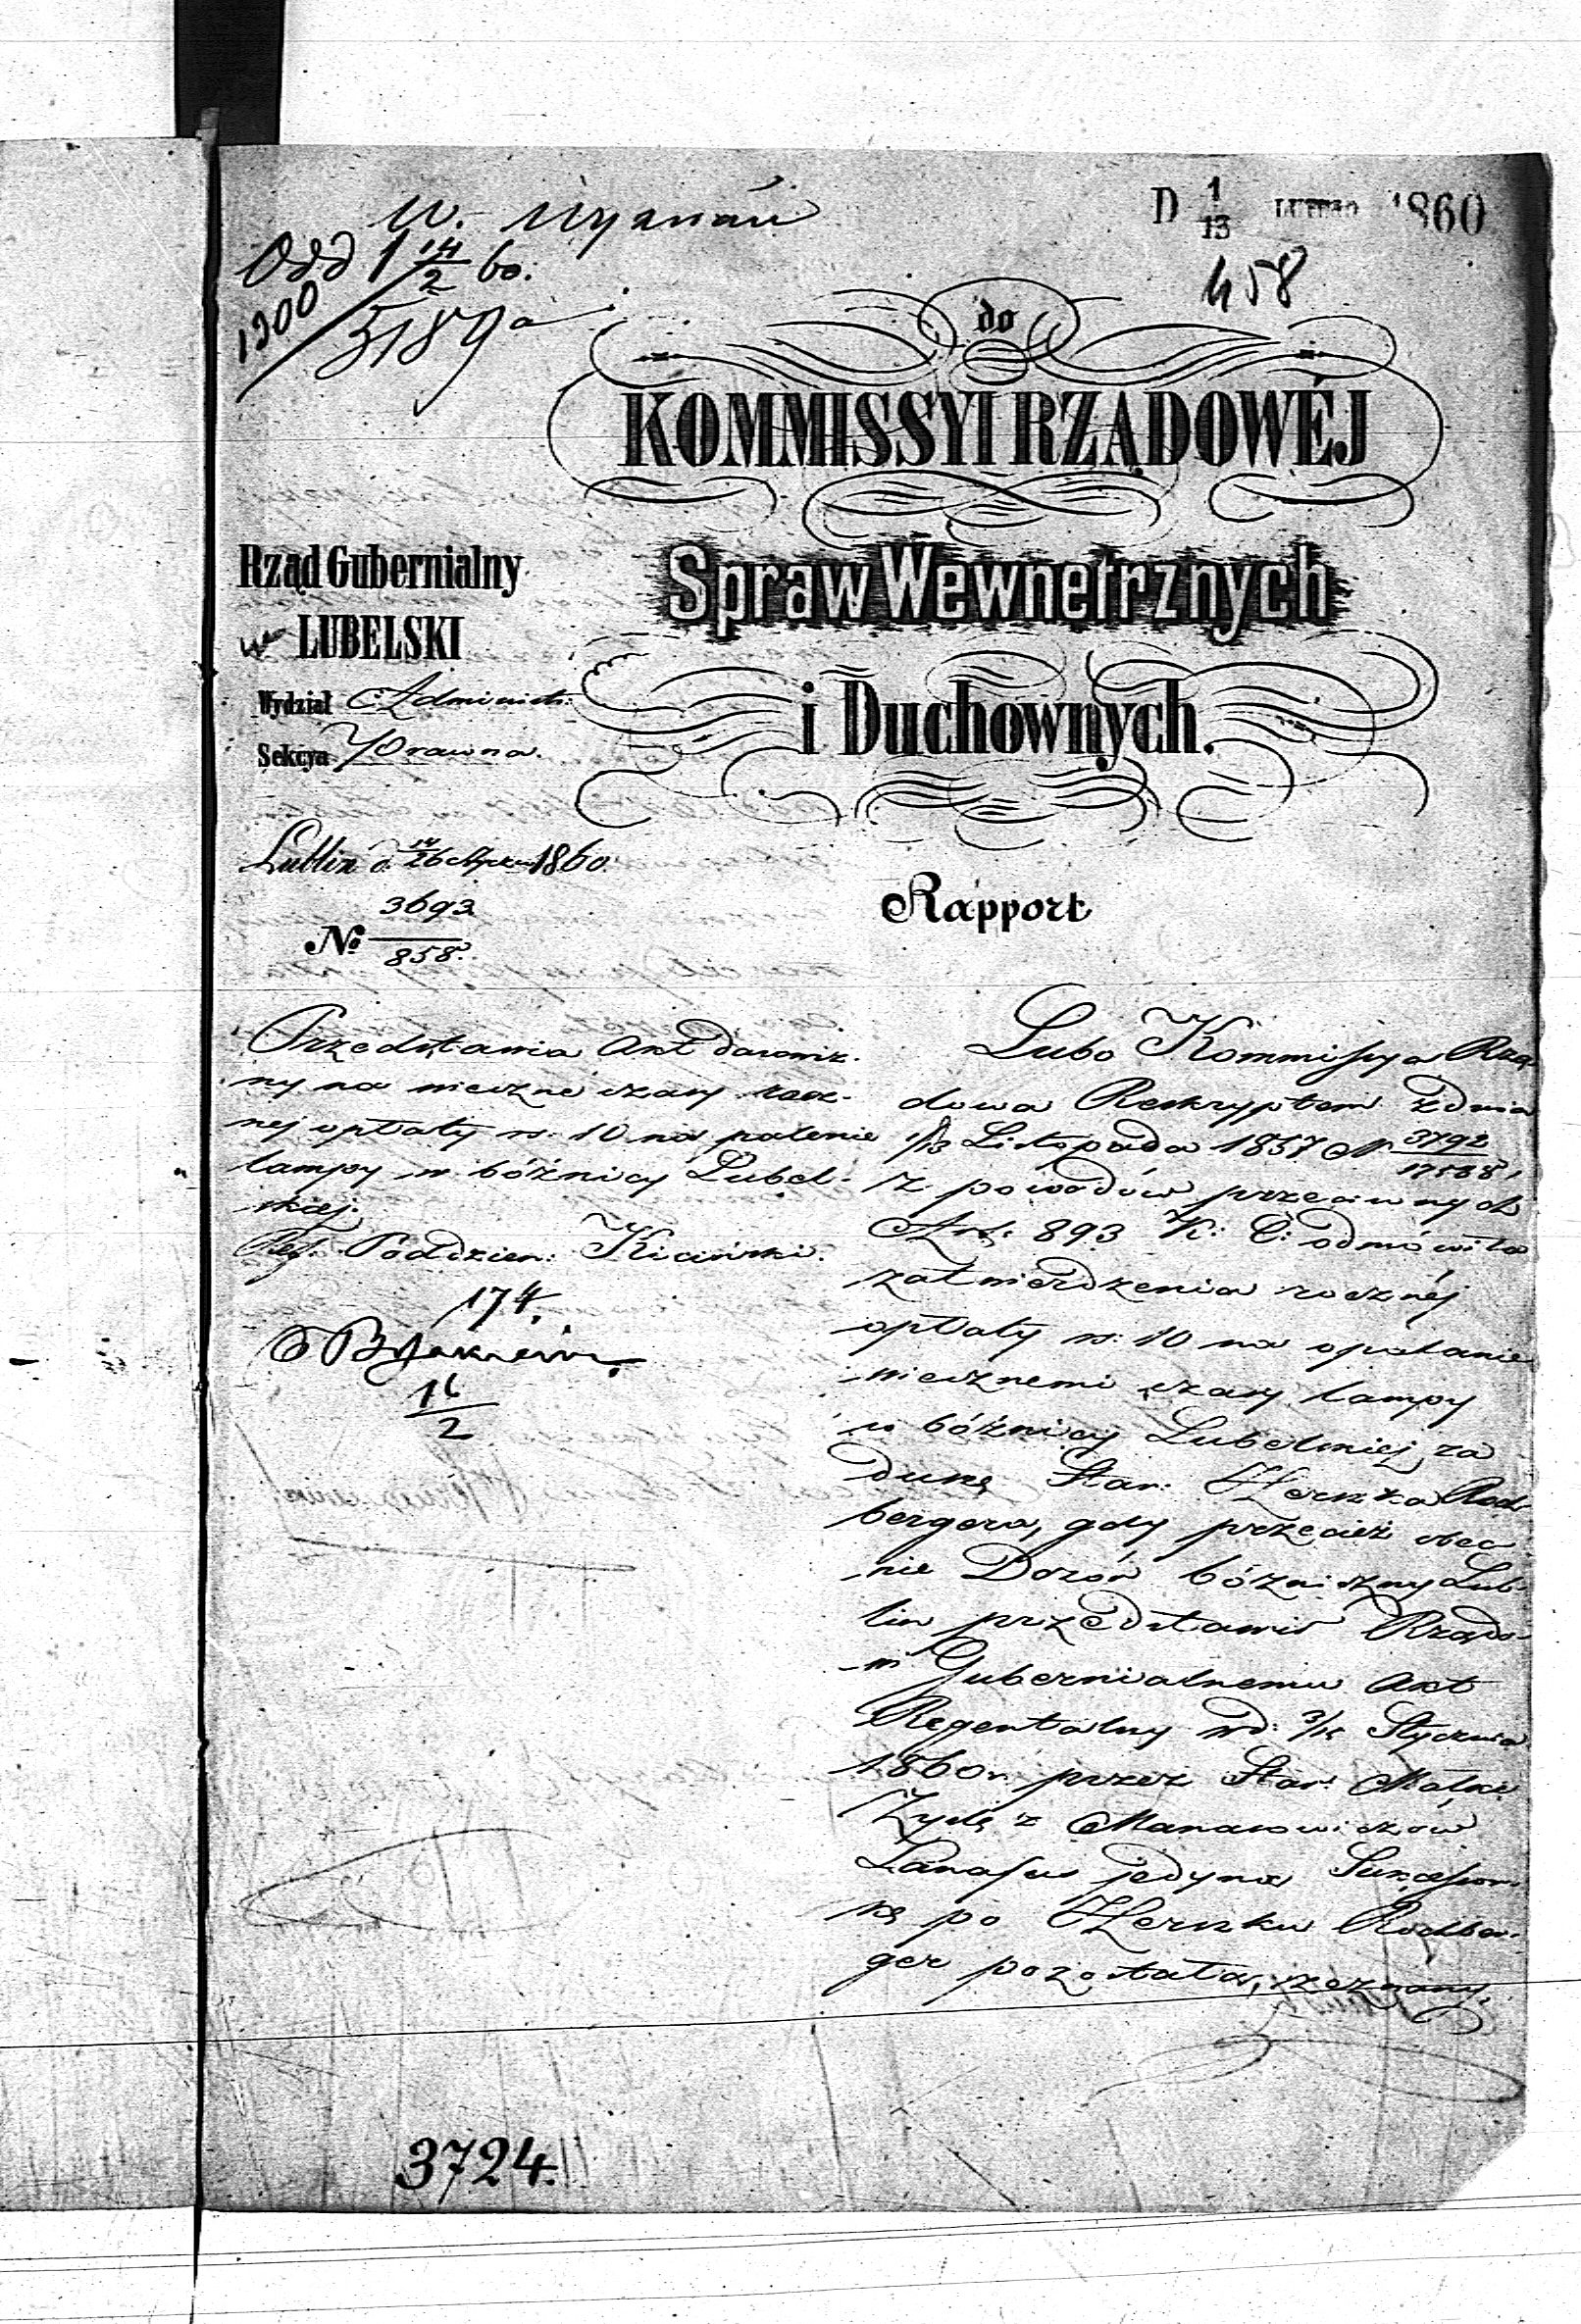 W. Wyznań
D 1/13 LUTEGO 1860
Odd 1 14/2 60.
1200
3189
458
do
KOMMISSYI RZĄDOWÉJ
Spraw Wewnętrznych
i Duchownych.
Rząd Gubernialny
LUBELSKI
Wydział Administr:
Sekcya Prawna.
Lublin d. 14/26 Stycznia 1860.
No 3693/858.
Rapport
Przedstawia Akt darowiz-
ny na wieczne czasy rocz-
nej opłaty rs. 10 na palenie
lampy w bóżnicy Lubel-
skiej.
Ref. Poddzien: Kiciński.
174.
16/2
Lubo Kommissya Rzą-
dowa Reskryptem z dnia
1/13 Listopada 1857 N 3792/17588,
z powodów przeciwnych
Art. 893 K: C: odmówiła
zatwierdzenia rocznéj
opłaty rs: 10 na opalanie
wiecznemi czasy lampy
w bóżnicy Lubelskiej za
duszę Star. Herszka Rod-
bergera, gdy przecież obec-
nie Dozór bóżniczny Lub-
lin przedstawił Rządo-
wi Gubernialnemu Akt
Regentalny w d: 3/15 Stycznia
1860 r. przez Star. Małkę
Zysłę z Manasowiczów
jedyną Sukcessor-
kę po Herszku Rodber-
ger pozostałą, zeznany,
3724.